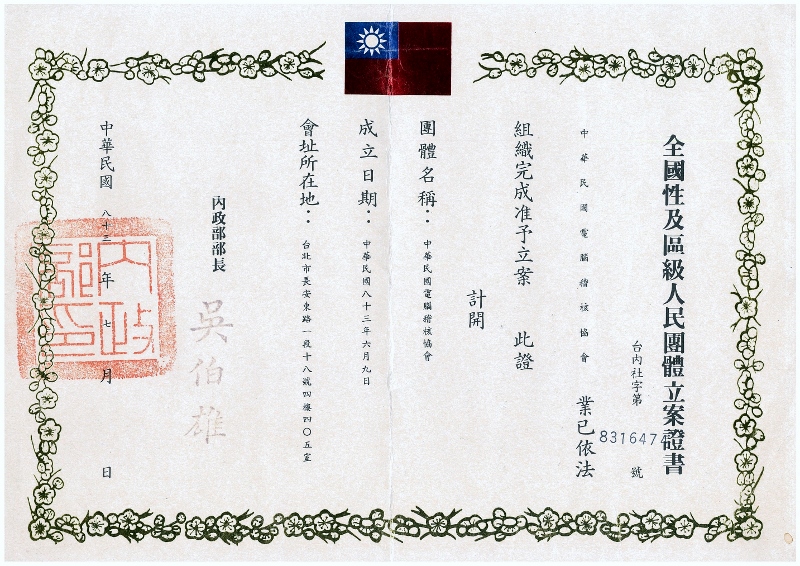 全國性及區級人民團體立案證書
台內社字第8316474號
中華民國電腦稽核協會 業已依法
組織完成准予立案 此證
計開
團體名稱：中華民國電腦稽核協會
成立日期：中華民國八十三年六月九日
會址所在地：台北市長安東路一段十八號四樓四〇五室
內政部部長 吳伯雄
中華民國八十三年七月 日
內政部印